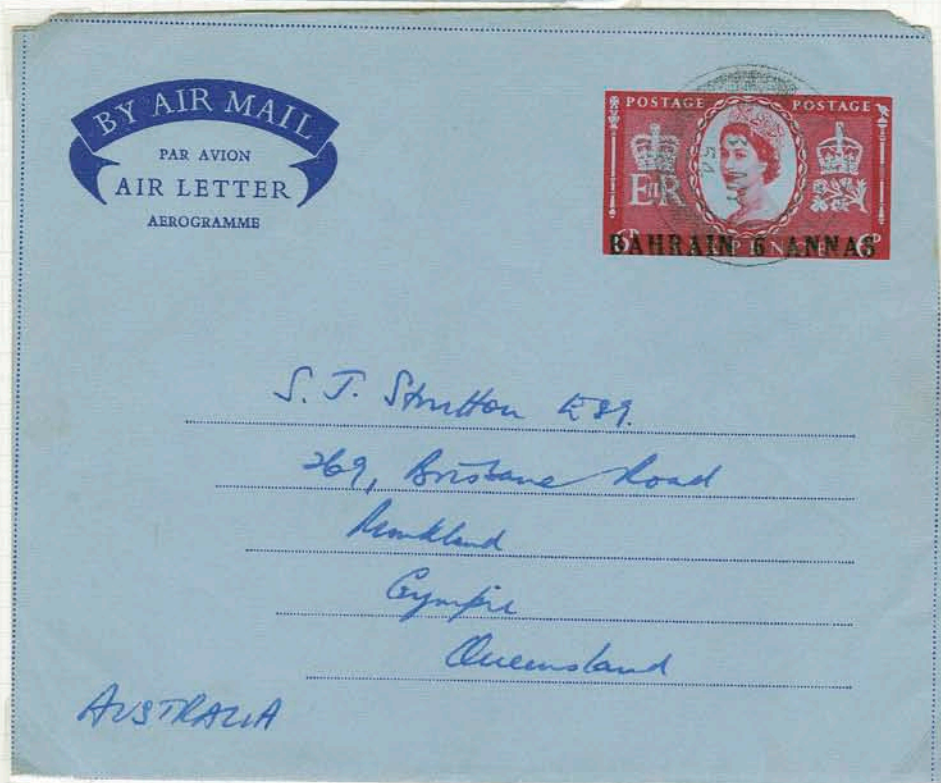 BY AIR MAIL
PAR AVION
AIR LETTER
AEROGRAMME
POSTAGE POSTAGE
EIIR
BAHRAIN 6 ANNAS
54
S. J. Strutton Esq.
269, Brisbane Road
Monkland
Gympie
Queensland
AUSTRALIA